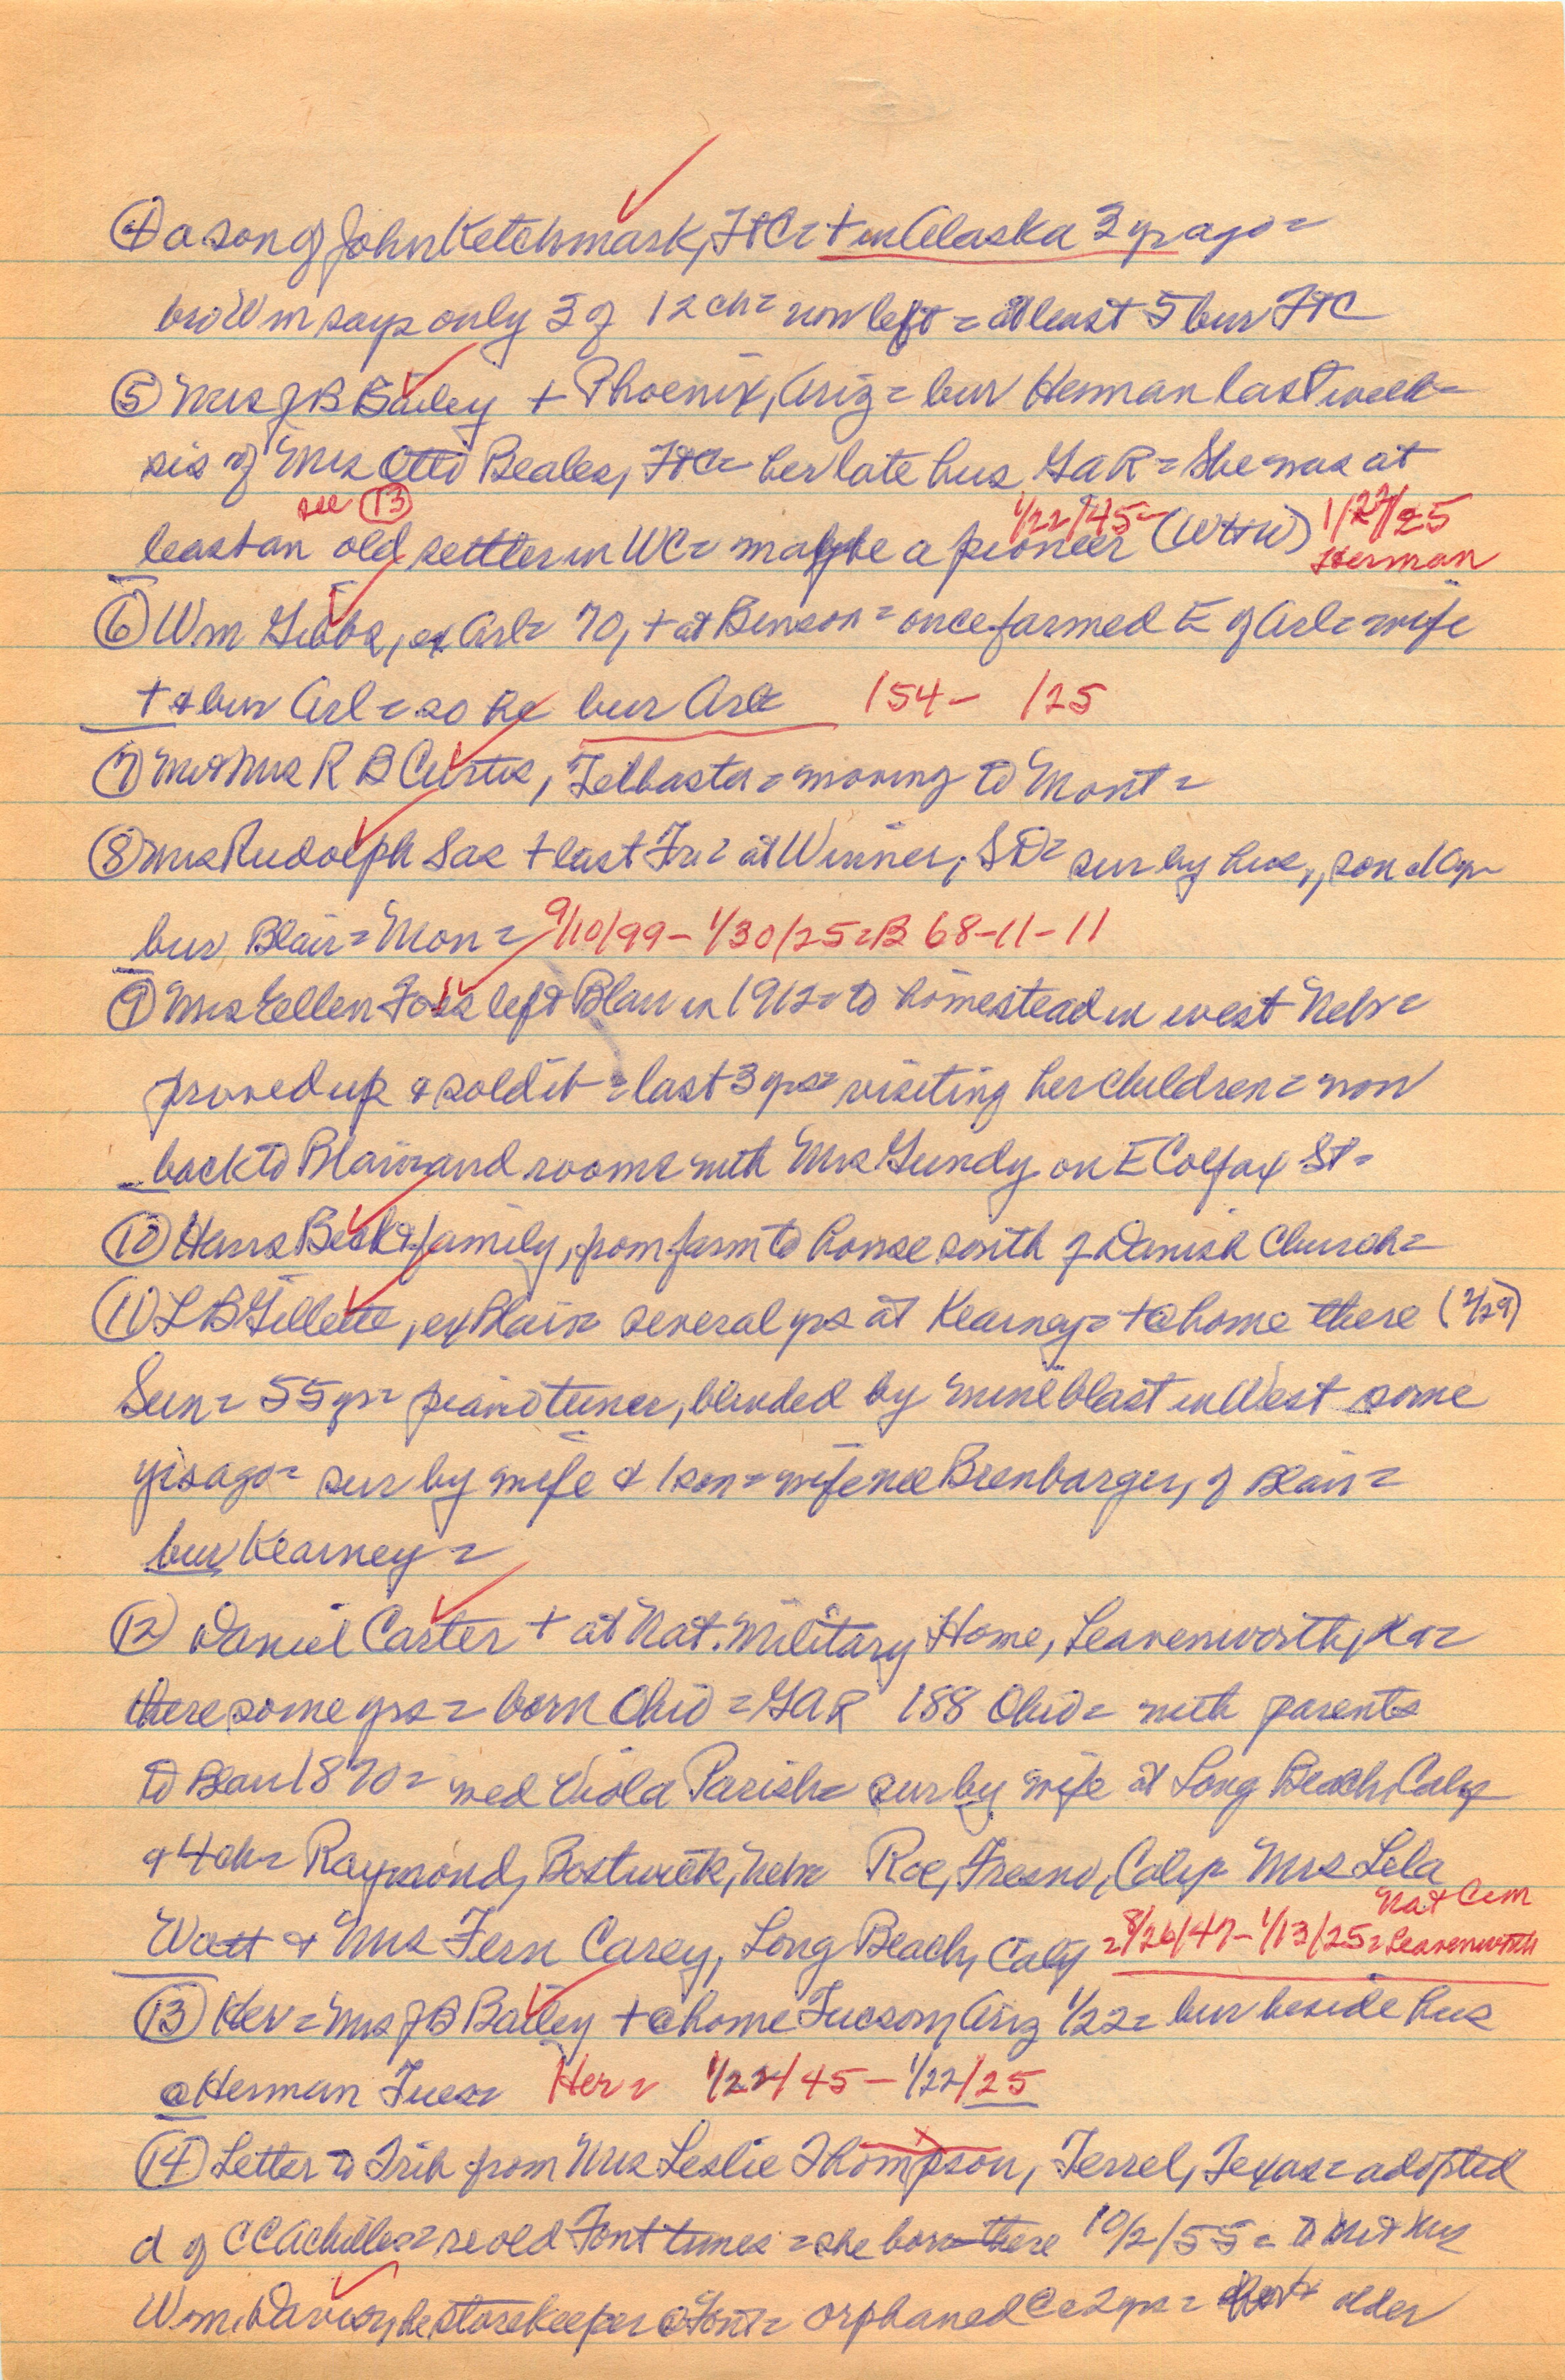 ④ a son of John Ketchmark, FtC = + in Alaska 3 yr ago =
bro Wm says only 3 of 12 ch = now left = at least 5 bur FtC
⑤ Mrs J B Bailey + Phoenix, Ariz = bur Herman last week =
sis of Mrs Otto Beales, FtC = her late hus GAR = She was at
see ⑬ 1/22/45 - 1/22/25
least an old settler in WC = maybe a pioneer (WHW) Herman
⑥ Wm Gibbs, ex Arl = 70, + at Benson = once farmed E of Arl = wife
+ & bur Arl = so he bur Arl = 154 - 125
⑦ Mr & Mrs R B Curtis, Telbasta = moving to Mont =
⑧ Mrs Rudolph Sas + last Fri = at Winner, SD = sur by hus, son
bur Blair = Mon = 9/10/99 - 1/30/25 = B 68-11-11
⑨ Mrs Ellen Foss left Blair in 1912 = to homestead in west Nebr =
proved up & sold it = last 3 yrs = visiting her children = now
back to Blair and rooms with Mrs Gundy on E Colfax St =
⑩ Hans Beck & family, from farm to house south of Danish Church =
⑪ L B Gillette, ex Blair = several yrs at Kearney = + @ home there (1/29)
Sun = 55 yr = piano tuner, blinded by mine blast in West some
yrs ago = sur by wife & 1 son = wife nee Brenbarger, of Blair =
bur Kearney =
⑫ Daniel Carter + at Nat. Military Home, Leavenworth, Ka =
there some yrs = born Ohio = GAR 188 Ohio = with parents
to Blair 1870 = med Viola Parish = sur by wife at Long Beach, Calif
& 4 ch = Raymond, Bostwick, Nebr Roe, Fresno, Calif = Mrs Lela
Nat Cem
Watt & Mrs Fern Carey, Long Beach, Calif = 8/26/47 - 1/13/25 = Leavenworth
⑬ Her = Mrs J B Bailey + @ home Tucson, Ariz 1/22 = bur beside hus
@ Herman Tues = Her = 1/22/45 - 1/22/25
⑭ Letter to Trib from Mrs Leslie Thompson, Terrel, Texas = adopted
d of C C Achilles = re old Font times = she born there 10/2/55 = to Mr & Mrs
Wm. Davison, he storekeeper @ Font = orphaned @ 2 yrs = older